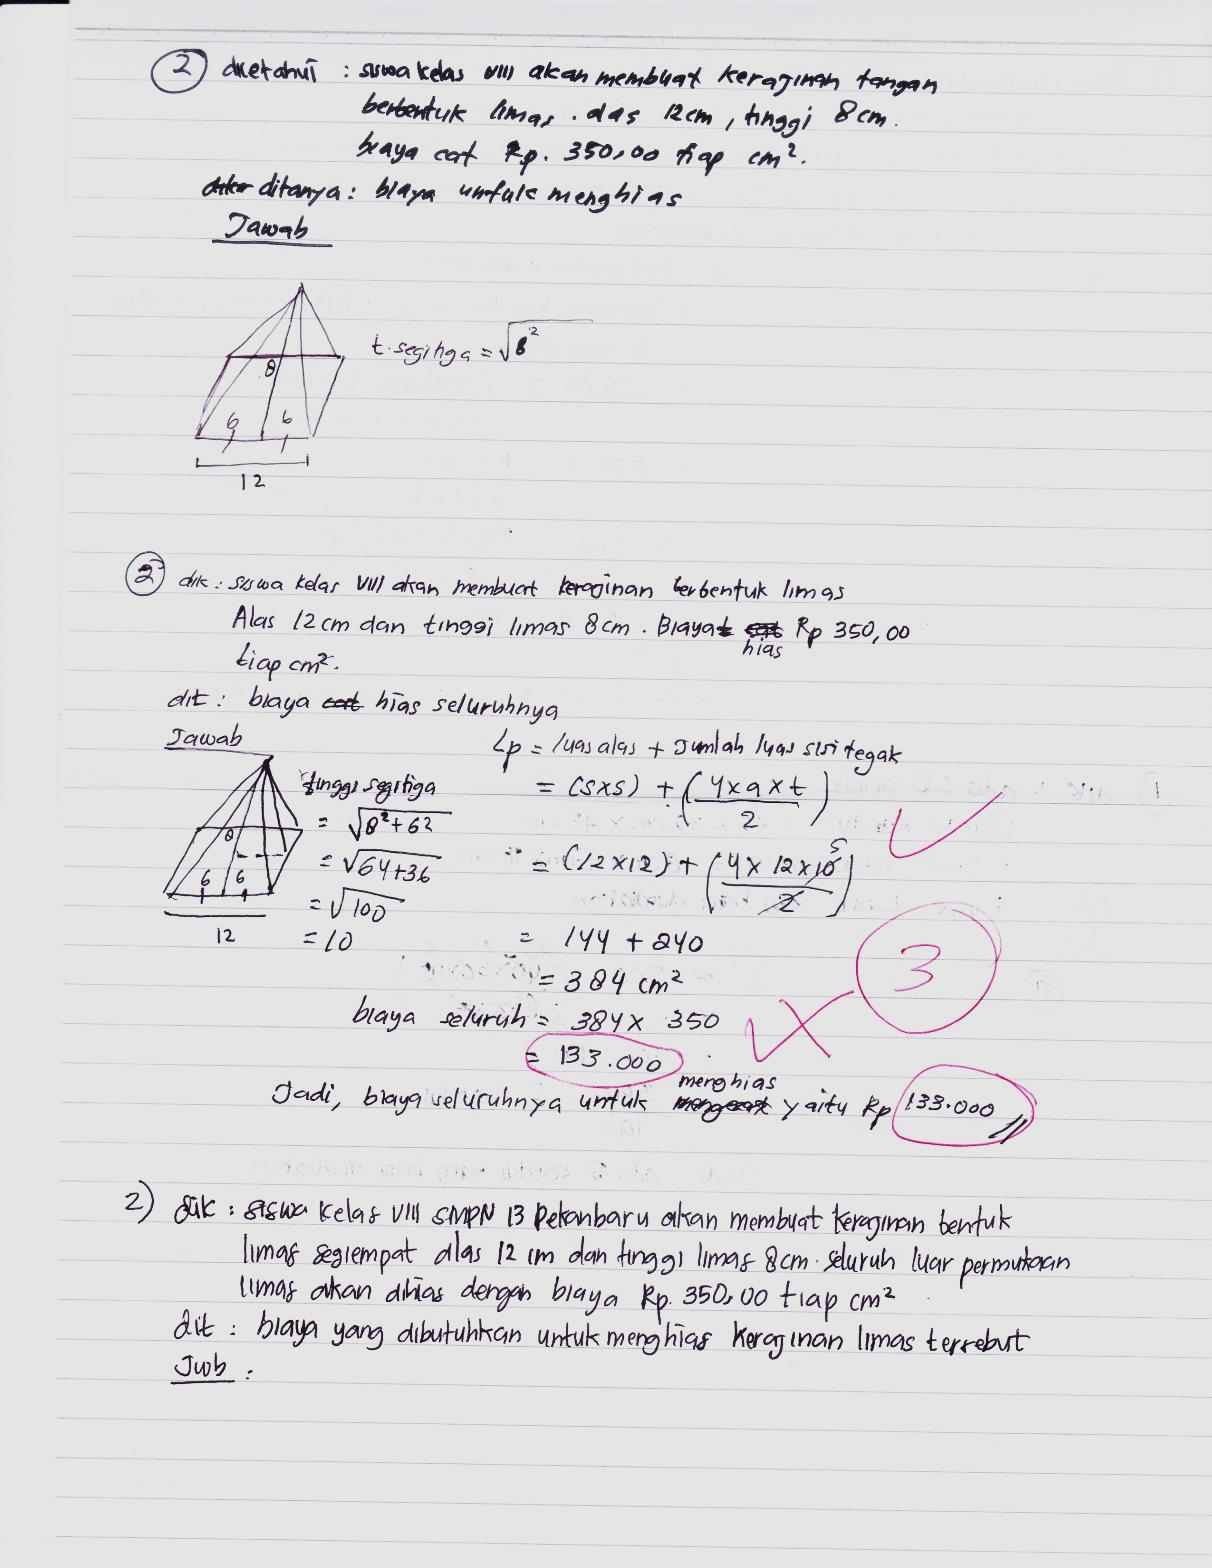 2 diketahui : siswa kelas VIII akan membuat kerajinan tangan
berbentuk limas . alas 12cm, tinggi 8cm.
biaya cat Rp. 350,00 tiap cm².
ditanya : biaya untuk menghias
Jawab
t. segitiga = √8²
8
6 6
12
2 dik : siswa kelas VIII akan membuat kerajinan berbentuk limas
Alas 12cm dan tinggi limas 8cm. Biaya cat Rp 350,00
hias
tiap cm².
dit : biaya cat hias seluruhnya
Jawab
Lp = luas alas + Jumlah luas sisi tegak
tinggi segitiga
= (s×s) + (4×a×t / 2)
= √8²+62
= √64+36
= (12×12) + (4× 12×10 / 2)
5
= √100
= 10
8
6 6
12
= 144 + 240
= 384 cm²
3
biaya seluruh = 384× 350
= 133.000
menghias
Jadi, biaya seluruhnya untuk mengecat yaitu Rp 133.000
2) dik : siswa kelas VIII SMPN 13 Pekanbaru akan membuat kerajinan bentuk
limas segiempat alas 12 cm dan tinggi limas 8cm. seluruh luar permukaan
limas akan dihias dengan biaya Rp. 350,00 tiap cm²
dit : biaya yang dibutuhkan untuk menghias kerajinan limas tersebut
Jwb :